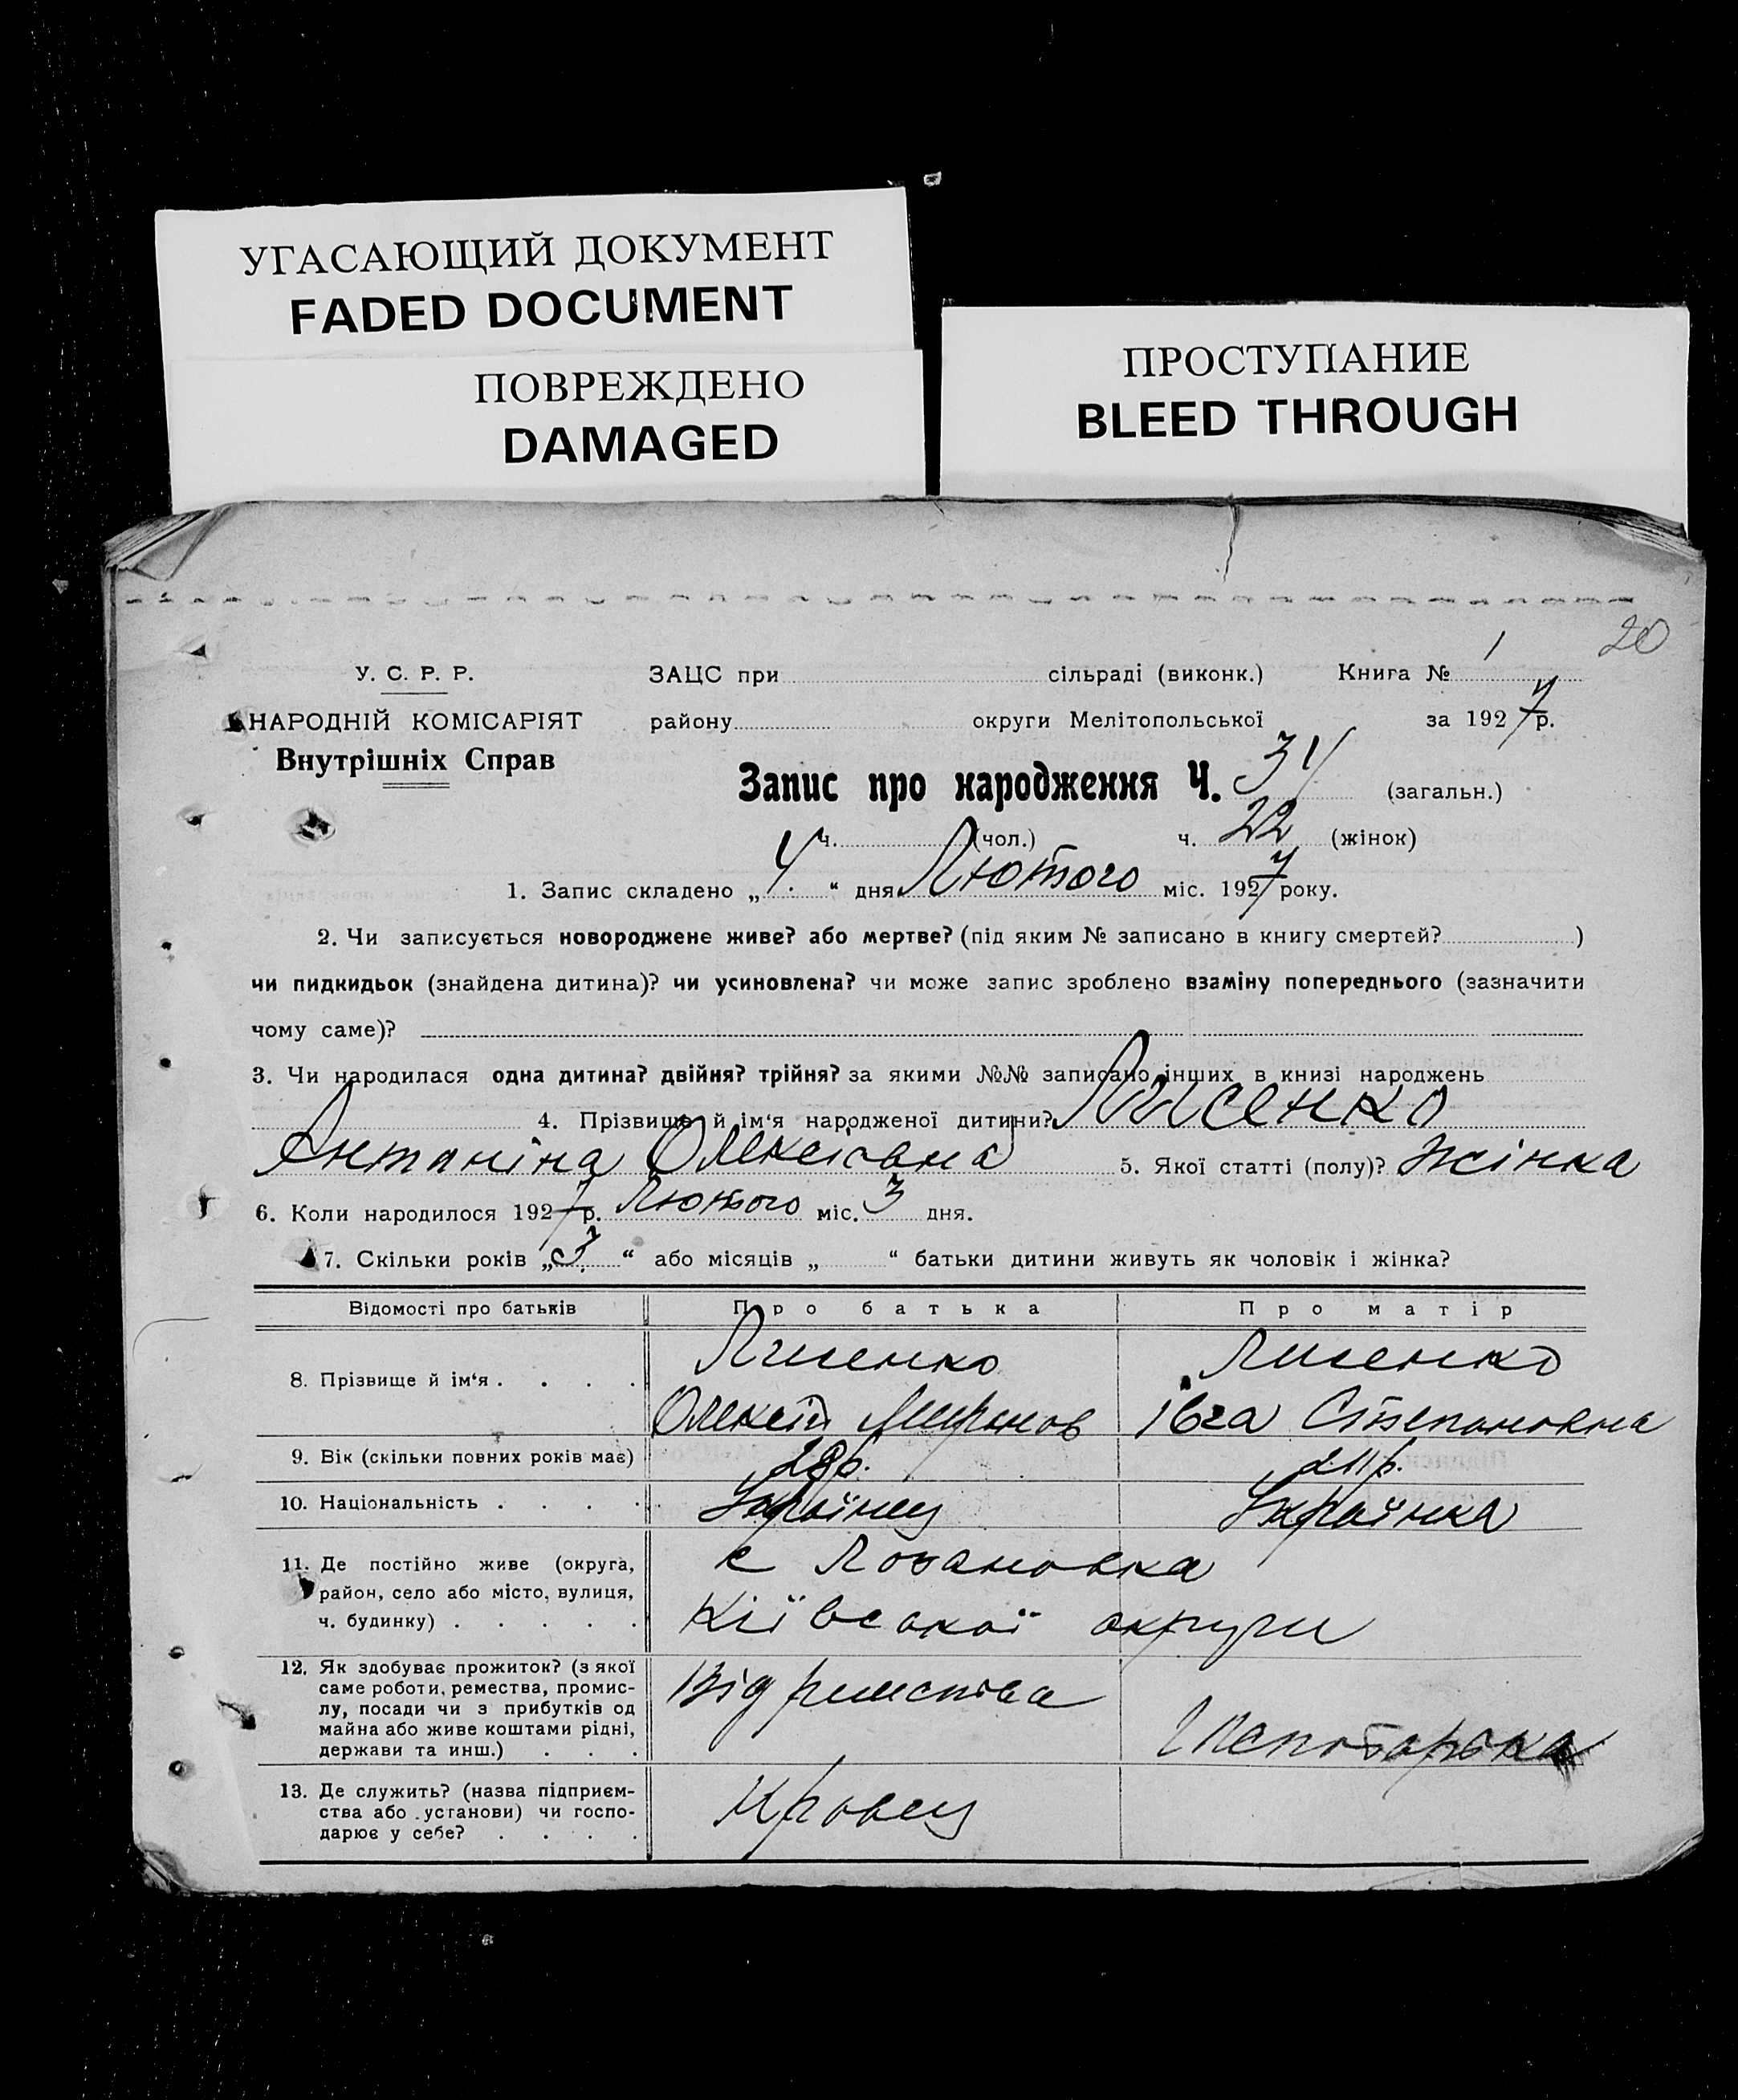 УГАСАЮЩИЙ ДОКУМЕНТ
FADED DOCUMENT
ПОВРЕЖДЕНО
DAMAGED
ПРОСТУПАНИЕ
BLEED THROUGH
20
У. С. Р. Р.
НАРОДНІЙ КОМІСАРІЯТ
Внутрішніх Справ
ЗАЦС при сільраді (виконк.) Книга № 1
району округи Мелітопольської за 1927 р.
Запис про народження Ч. 34 (загальн.)
ч. (чол.) ч. 22 (жінок)
1. Запис складено „4“ дня Лютого міс. 1927 року.
2. Чи записується новороджене живе? або мертве? (під яким № записано в книгу смертей? )
чи пидкидьок (знайдена дитина)? чи усиновлена? чи може запис зроблено взаміну попереднього (зазначити
чому саме)?
3. Чи народилася одна дитина? двійня? трійня? за якими №№ записано інших в книзі народжень
4. Прізвище й ім‘я народженої дитини? Лисенко
Антаніна Олексієвна 5. Якої статті (полу)? жінка
6. Коли народилося 1927 р. Лютого міс. 3 дня.
7. Скільки років „3“ або місяців „ “ батьки дитини живуть як чоловік і жінка?
Відомості про батьків Про батька Про матір
8. Прізвище й ім‘я . . . . Лисенко Лисенко
Олексій Миронов Івга Степановна
9. Вік (скільки повних років має) 28 р.
10. Національність . . . . Українец Українка
11. Де постійно живе (округа,
район, село або місто, вулиця,
ч. будинку) . . . . .
с
Київської округи
12. Як здобуває прожиток? (з якої
саме роботи, ремества, промис-
лу, посади чи з прибутків од
майна або живе коштами рідні,
держави та инш.) . . .
Від ремества
13. Де служить? (назва підприєм-
ства або установи) чи госпо-
дарює у себе? . . . .
Кравец